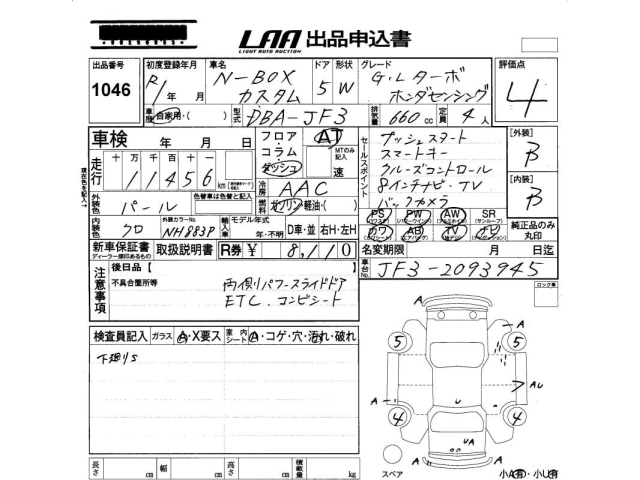 LAA 出品申込書
LIGHT AUTO AUCTION
出品番号 初度登録年月 車名 ドア 形状 グレード 評価点
1046 R1 年 月 N-BOX カスタム 5 W G・Lターボ ホンダセンシング 4
車歴 自家用・( ) 型式 DBA-JF3 排気量 660 cc 定員 4 人
車検 年 月 日 フロア・コラム・ダッシュ AT MTのみ記入 速
セールスポイント プッシュスタート [外装] B
スマートキー
クルーズコントロール
8インチナビ・TV [内装] B
バックカメラ
走行 十 万 千 百 十 一
11456 km
冷房 AAC
外装色 パール 色替車は色替と記入 燃料 ガソリン・軽油・( )
PS PW AW SR
(サンルーフ) 純正品のみ丸印
カワ AB TV ナビ
内装色 クロ 外装カラーNo. NH883P 輸入車 モデル年式 年・不明 D車・並 右H・左H
新車保証書 ディーラー捺印あるもの 取扱説明書 R券 ¥ 8,110 名変期限 月 日迄
車台No. JF3-2093945
注意事項 後日品【 】
不具合箇所等 両側パワースライドドア
ETC、コンビシート
ロック車
検査員記入 ガラス A・X要ス 室内シート A・コゲ・穴・汚れ・破れ
下廻りS
A
5 5
A U AU
4 4
A
U U
A
スペア 小A有・小U有
長さ cm 幅 cm 高さ cm 積載量 kg